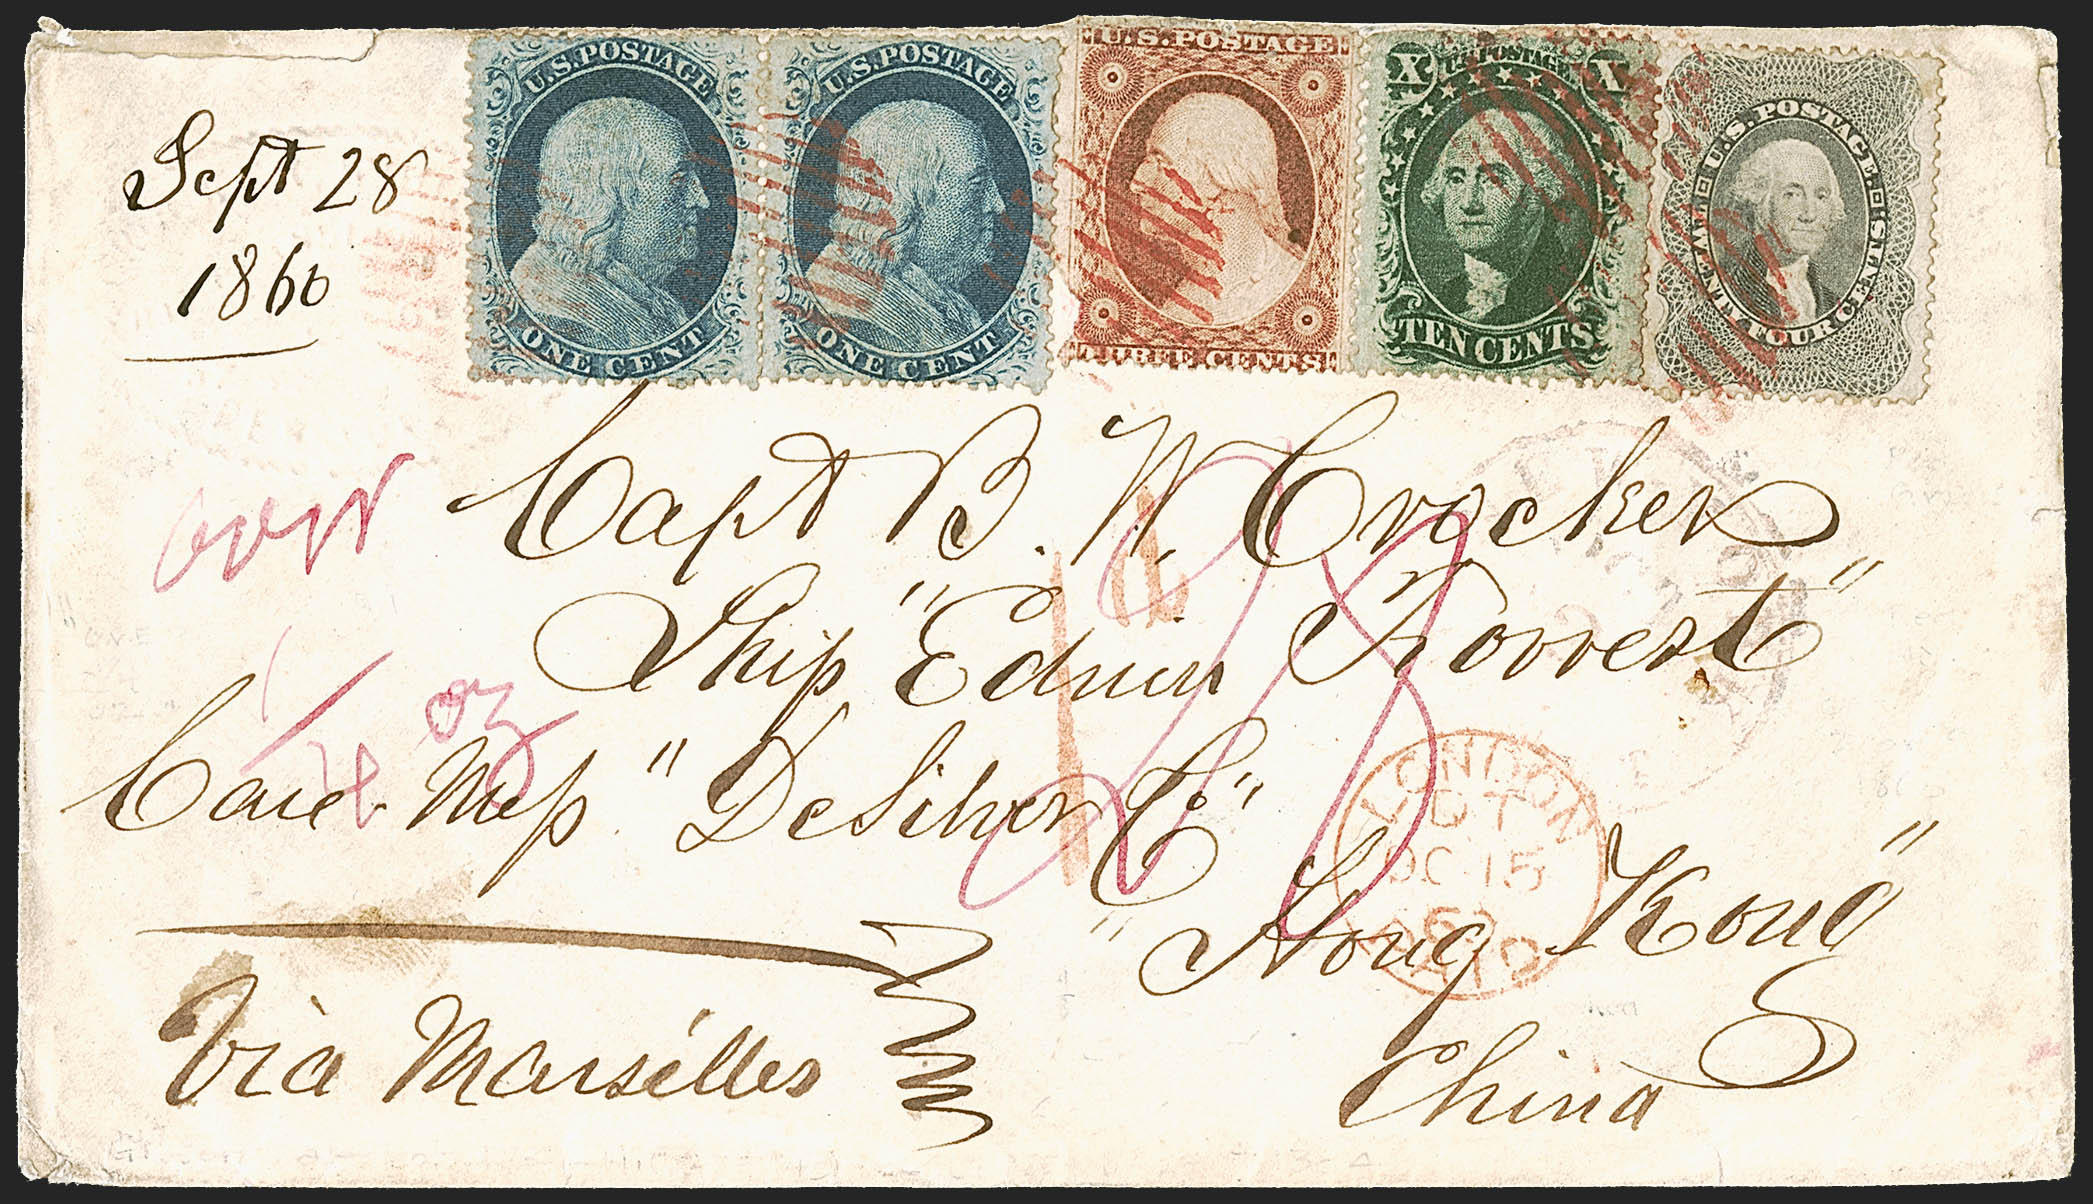 U.S. POSTAGE
ONE CENT
U.S. POSTAGE
ONE CENT
U.S. POSTAGE
THREE CENTS
X U.S. POSTAGE X
TEN CENTS
U.S. POSTAGE.
TWENTY FOUR CENTS
Sept 28
1860
Capt B. W. Crocker
Ship "Edwin Forrest"
oz
Care Mess "DeSilver Co"
"Hong Kong"
China
Via Marseilles
LONDON
OC 15
60
PAID